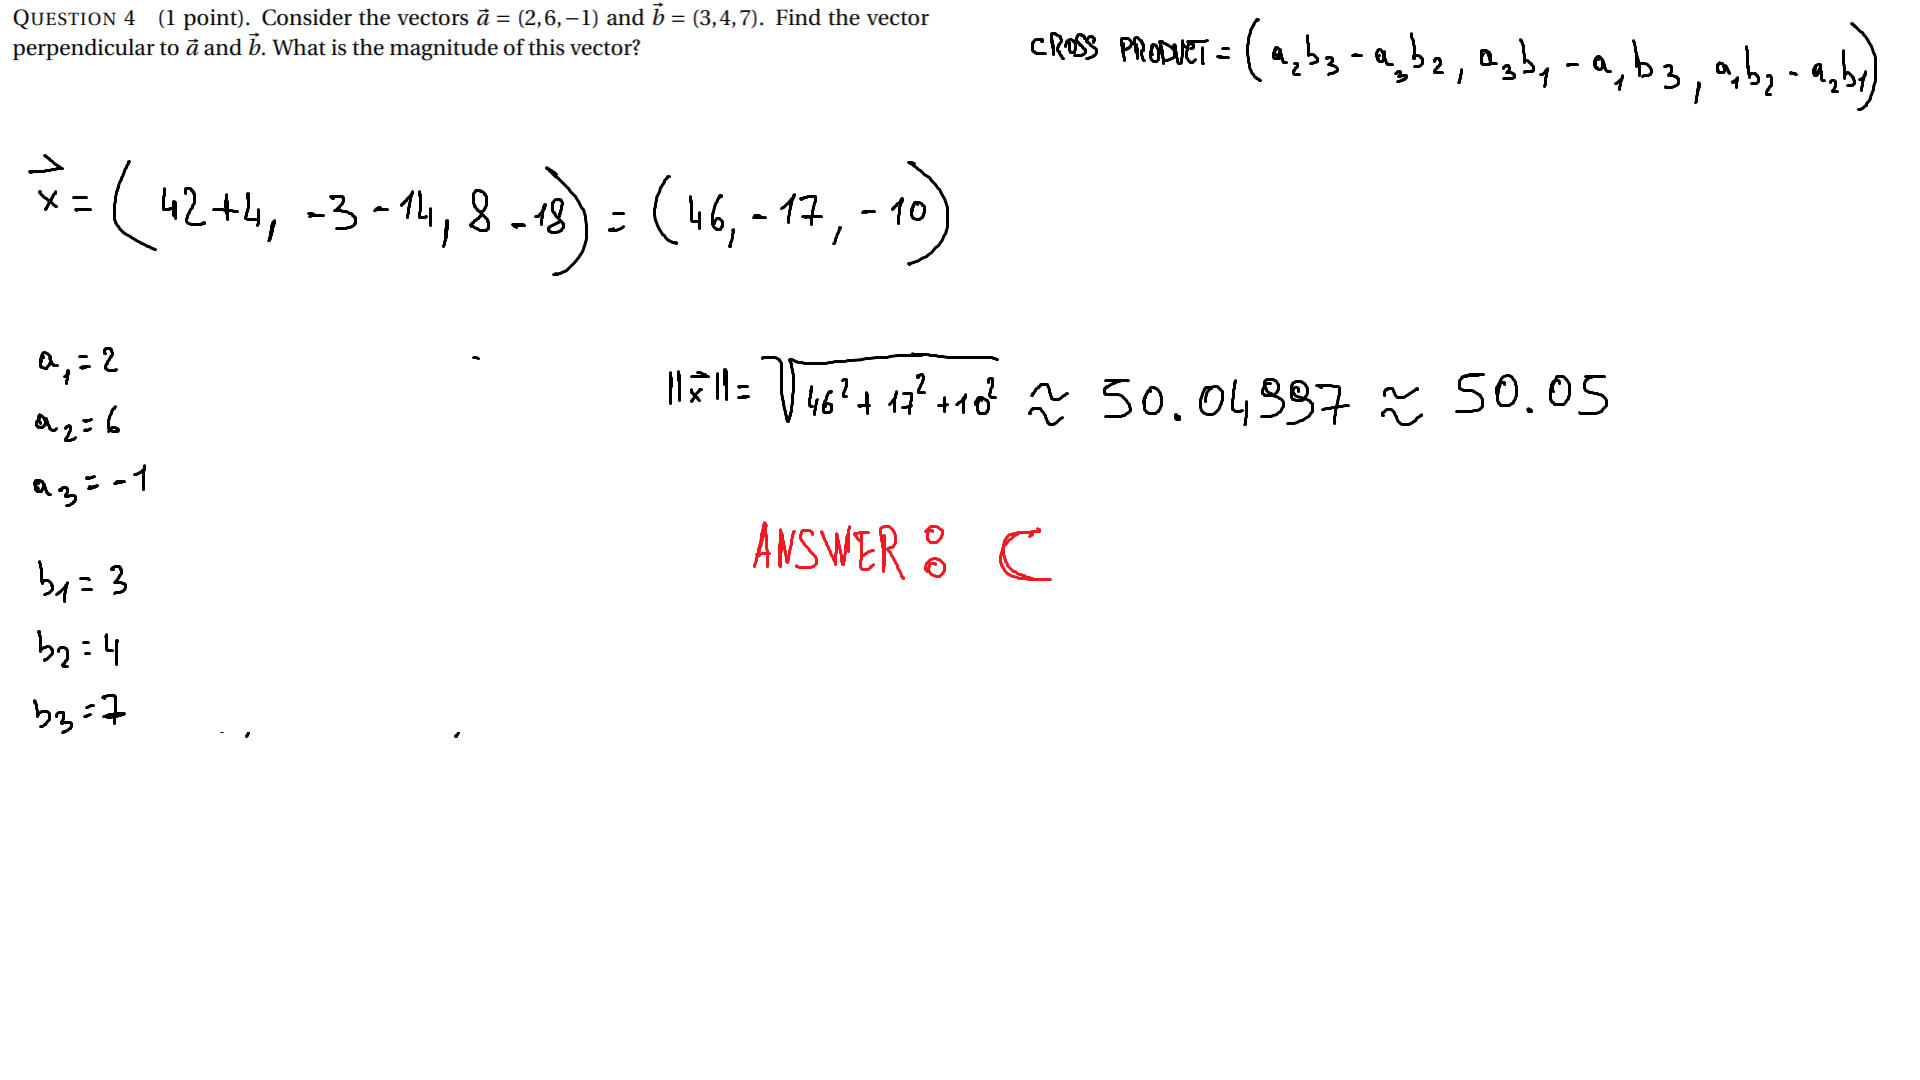 QUESTION 4 (1 point). Consider the vectors a⃗ = (2,6,−1) and b⃗ = (3,4,7). Find the vector
perpendicular to a⃗ and b⃗. What is the magnitude of this vector?
CROSS PRODUCT = (a₂b₃ - a₃b₂, a₃b₁ - a₁b₃, a₁b₂ - a₂b₁)
x⃗ = (42+4, -3-14, 8-18) = (46, -17, -10)
a₁ = 2
a₂ = 6
a₃ = -1
b₁ = 3
b₂ = 4
b₃ = 7
||x⃗|| = √(46² + 17² + 10²) ≈ 50.04997 ≈ 50.05
ANSWER: C